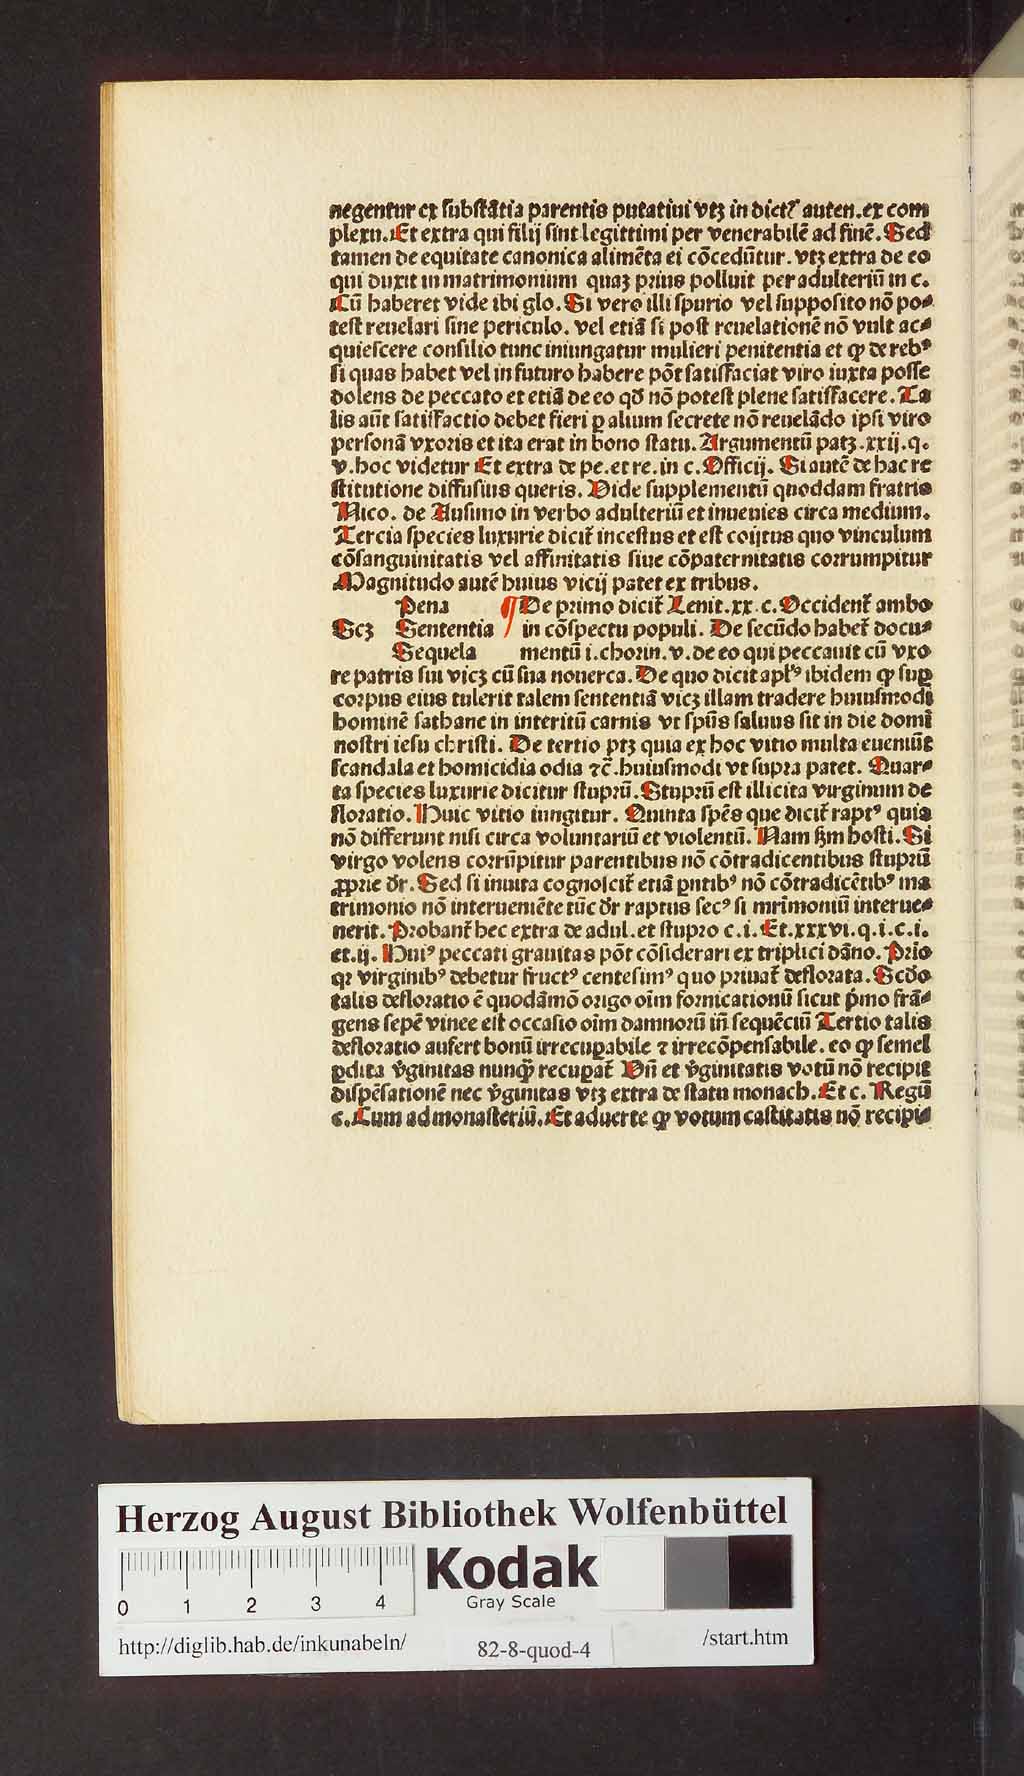 negentur ex ſubſtãtia parentis putatiui vtꝫ in dict᷒ auten.ex com
plexu.Et extra qui filij ſint legittimi per venerabilẽ ad finẽ.Sed
tamen de equitate canonica alimẽta ei cõcedũtur. vtꝫ extra de eo
qui duxit in matrimonium quaꝫ prius polluit per adulteriũ in c.
Cũ haberet vide ibi glo. Si vero illi ſpurio vel ſuppoſito nõ po⸗
teſt reuelari ſine periculo. vel etiã ſi poſt reuelationẽ nõ vult ac⸗
quieſcere conſilio tunc iniungatur mulieri penitentia et ꝙ de rebꝰ
ſi quas habet vel in futuro habere põt ſatiſfaciat viro iuxta poſſe
dolens de peccato et etiã de eo qd̄ nõ poteſt plene ſatiſfacere. Ta
lis aũt ſatiſfactio debet fieri ꝑ alium ſecrete nõ reuelãdo ipſi viro
perſonã vxoris et ita erat in bono ſtatu. Argumentũ patꝫ .xxij.q.
v.hoc videtur Et extra de pe.et re.in c.Officij. Si autẽ de hac re
ſtitutione diffuſius queris. Vide ſupplementũ quoddam fratris
Nico. de Auſimo in verbo adulteriũ et inuenies circa medium.
Tercia ſpecies luxurie dicit᷑ inceſtus et eſt coijtus quo vinculum
cõſanguinitatis vel affinitatis ſiue cõpaternitatis corrumpitur
Magnitudo autẽ huius vicij patet ex tribus.
Pena ¶ De primo dicit᷑ Leuit.xx.c.Occident᷑ ambo
Scꝫ Sententia in cõſpectu populi. De ſecũdo habet᷑ docu⸗
Sequela mentũ i.chorin.v.de eo qui peccauit cũ vxo
re patris ſui vicꝫ cũ ſua nouerca. De quo dicit aplꝰs ibidem ꝙ ſuꝑ
corpus eius tulerit talem ſententiã vicꝫ illam tradere huiuſmodi
hominẽ ſathane in interitũ carnis vt ſpũs ſaluus ſit in die domĩ
noſtri ieſu chriſti. De tertio ptꝫ quia ex hoc vitio multa eueniũt
ſcandala et homicidia odia ⁊c̃.huiuſmodi vt ſupra patet. Quar⸗
ta ſpecies luxurie dicitur ſtuprũ. Stuprũ eſt illicita virginum de
floratio. Huic vitio iungitur. Quinta ſpẽs que dicit᷑ raptꝰ quia
nõ differunt niſi circa voluntariũ et violentũ. Nam ẜm hoſti. Si
virgo volens corrũpitur parentibus nõ cõtradicentibus ſtuprũ
ꝓprie dr̃. Sed ſi inuita cognoſcit᷑ etiã pntibꝰ nõ cõtradicẽtibꝰ ma
trimonio nõ interueniẽte tũc dr̃ raptus ſecꝰ ſi mr̃imoniũ interue⸗
nerit. Probant᷑ hec extra de adul.et ſtupro c.i. Et.xxxvi.q.i.c.i.
et.ij. Huiꝰ peccati grauitas põt cõſiderari ex triplici dãno. Prio
qꝛ virginibꝰ debetur fructꝰ centeſimꝰ quo priuat᷑ deflorata. Scd̃o
talis defloratio ẽ quodãmõ origo oĩm fornicationũ ſicut p̃mo frã⸗
gens ſepẽ vinee eſt occaſio oĩm damnorũ in ſequẽciũ Tertio talis
defloratio aufert bonũ irrecuꝑabile ⁊ irrecõpenſabile. eo ꝙ ſemel
ꝑdita v̓ginitas nunꝙ̃ recuꝑat᷑ Vñ et v̓ginitatis votũ nõ recipit
diſpẽſationẽ nec v̓ginitas vtꝫ extra de ſtatu monach. Et c. Regũ
c.Cum ad monaſteriũ. Et aduerte ꝙ votum caſtitatis nõ recipi⸗
Herzog August Bibliothek Wolfenbüttel
0 1 2 3 4
Kodak
Gray Scale
http://diglib.hab.de/inkunabeln/ 82-8-quod-4 /start.htm